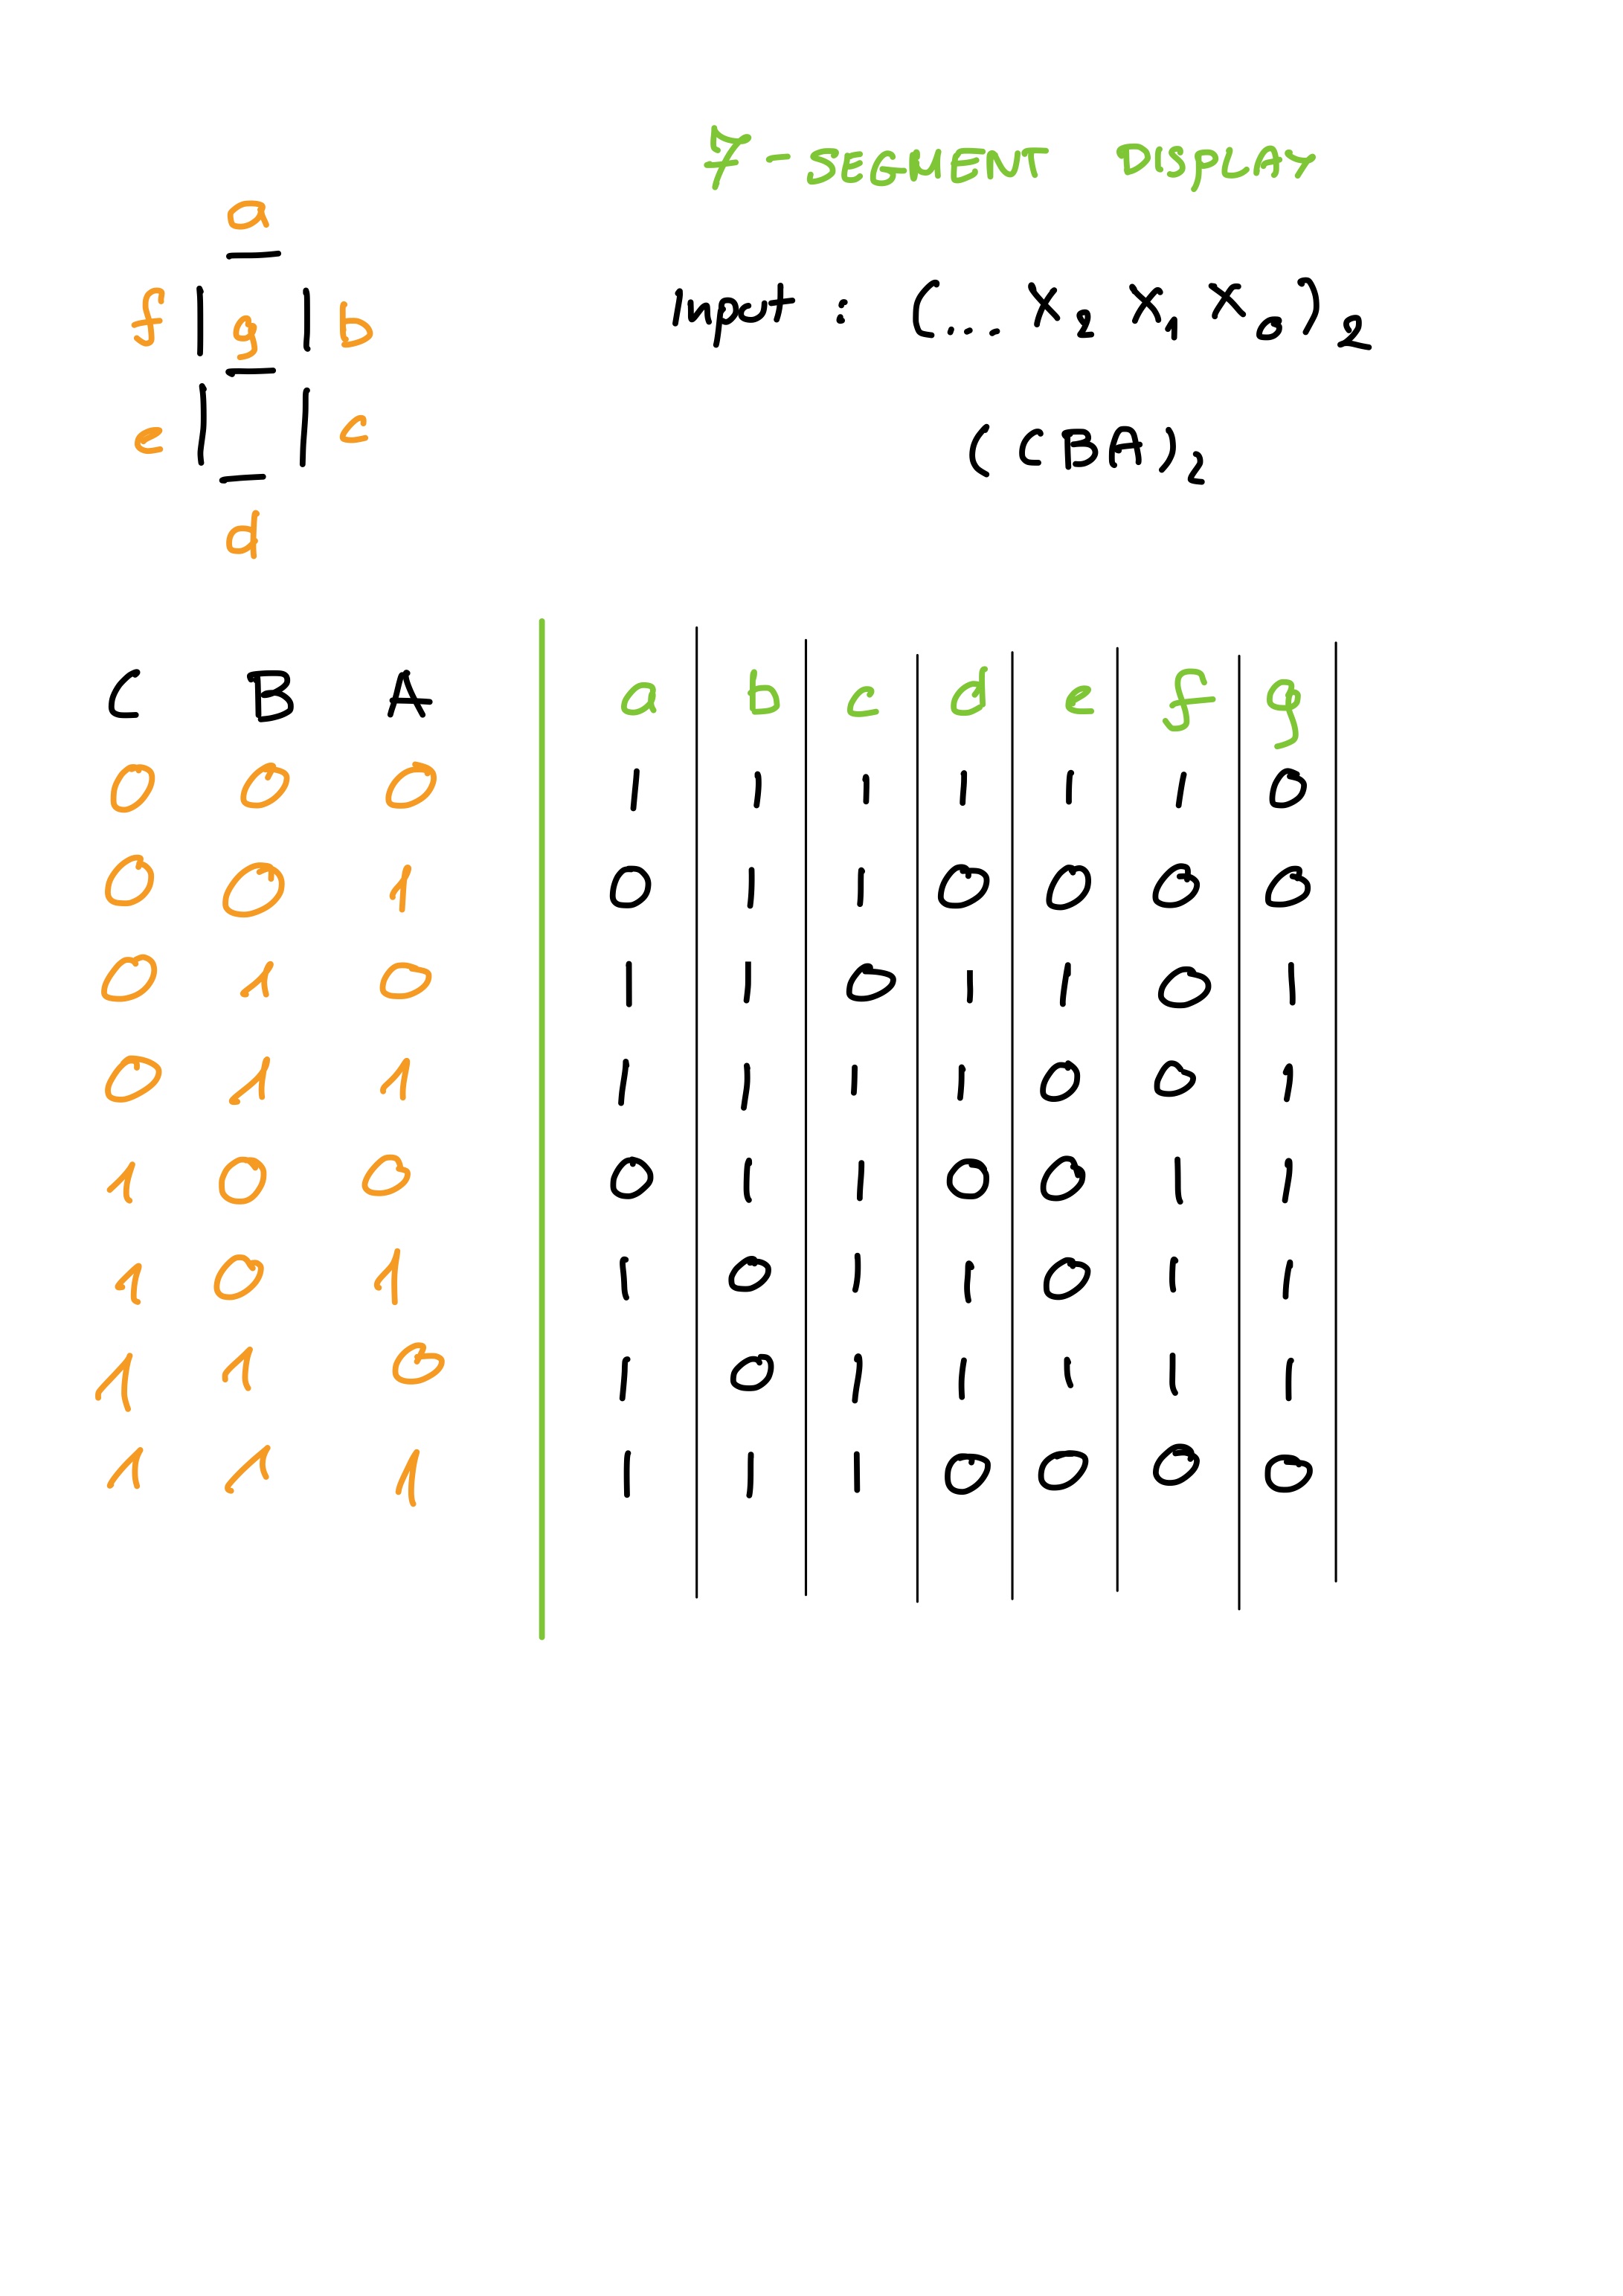 7-SEGMENT DISPLAY
a
f g b
input : (... X2 X1 X0)2
e c
(CBA)2
d
C B A a b c d e f g
0 0 0 1 1 1 1 1 1 0
0 0 1 0 1 1 0 0 0 0
0 1 0 1 1 0 1 1 0 1
0 1 1 1 1 1 1 0 0 1
1 0 0 0 1 1 0 0 1 1
1 0 1 1 0 1 1 0 1 1
1 1 0 1 0 1 1 1 1 1
1 1 1 1 1 1 0 0 0 0